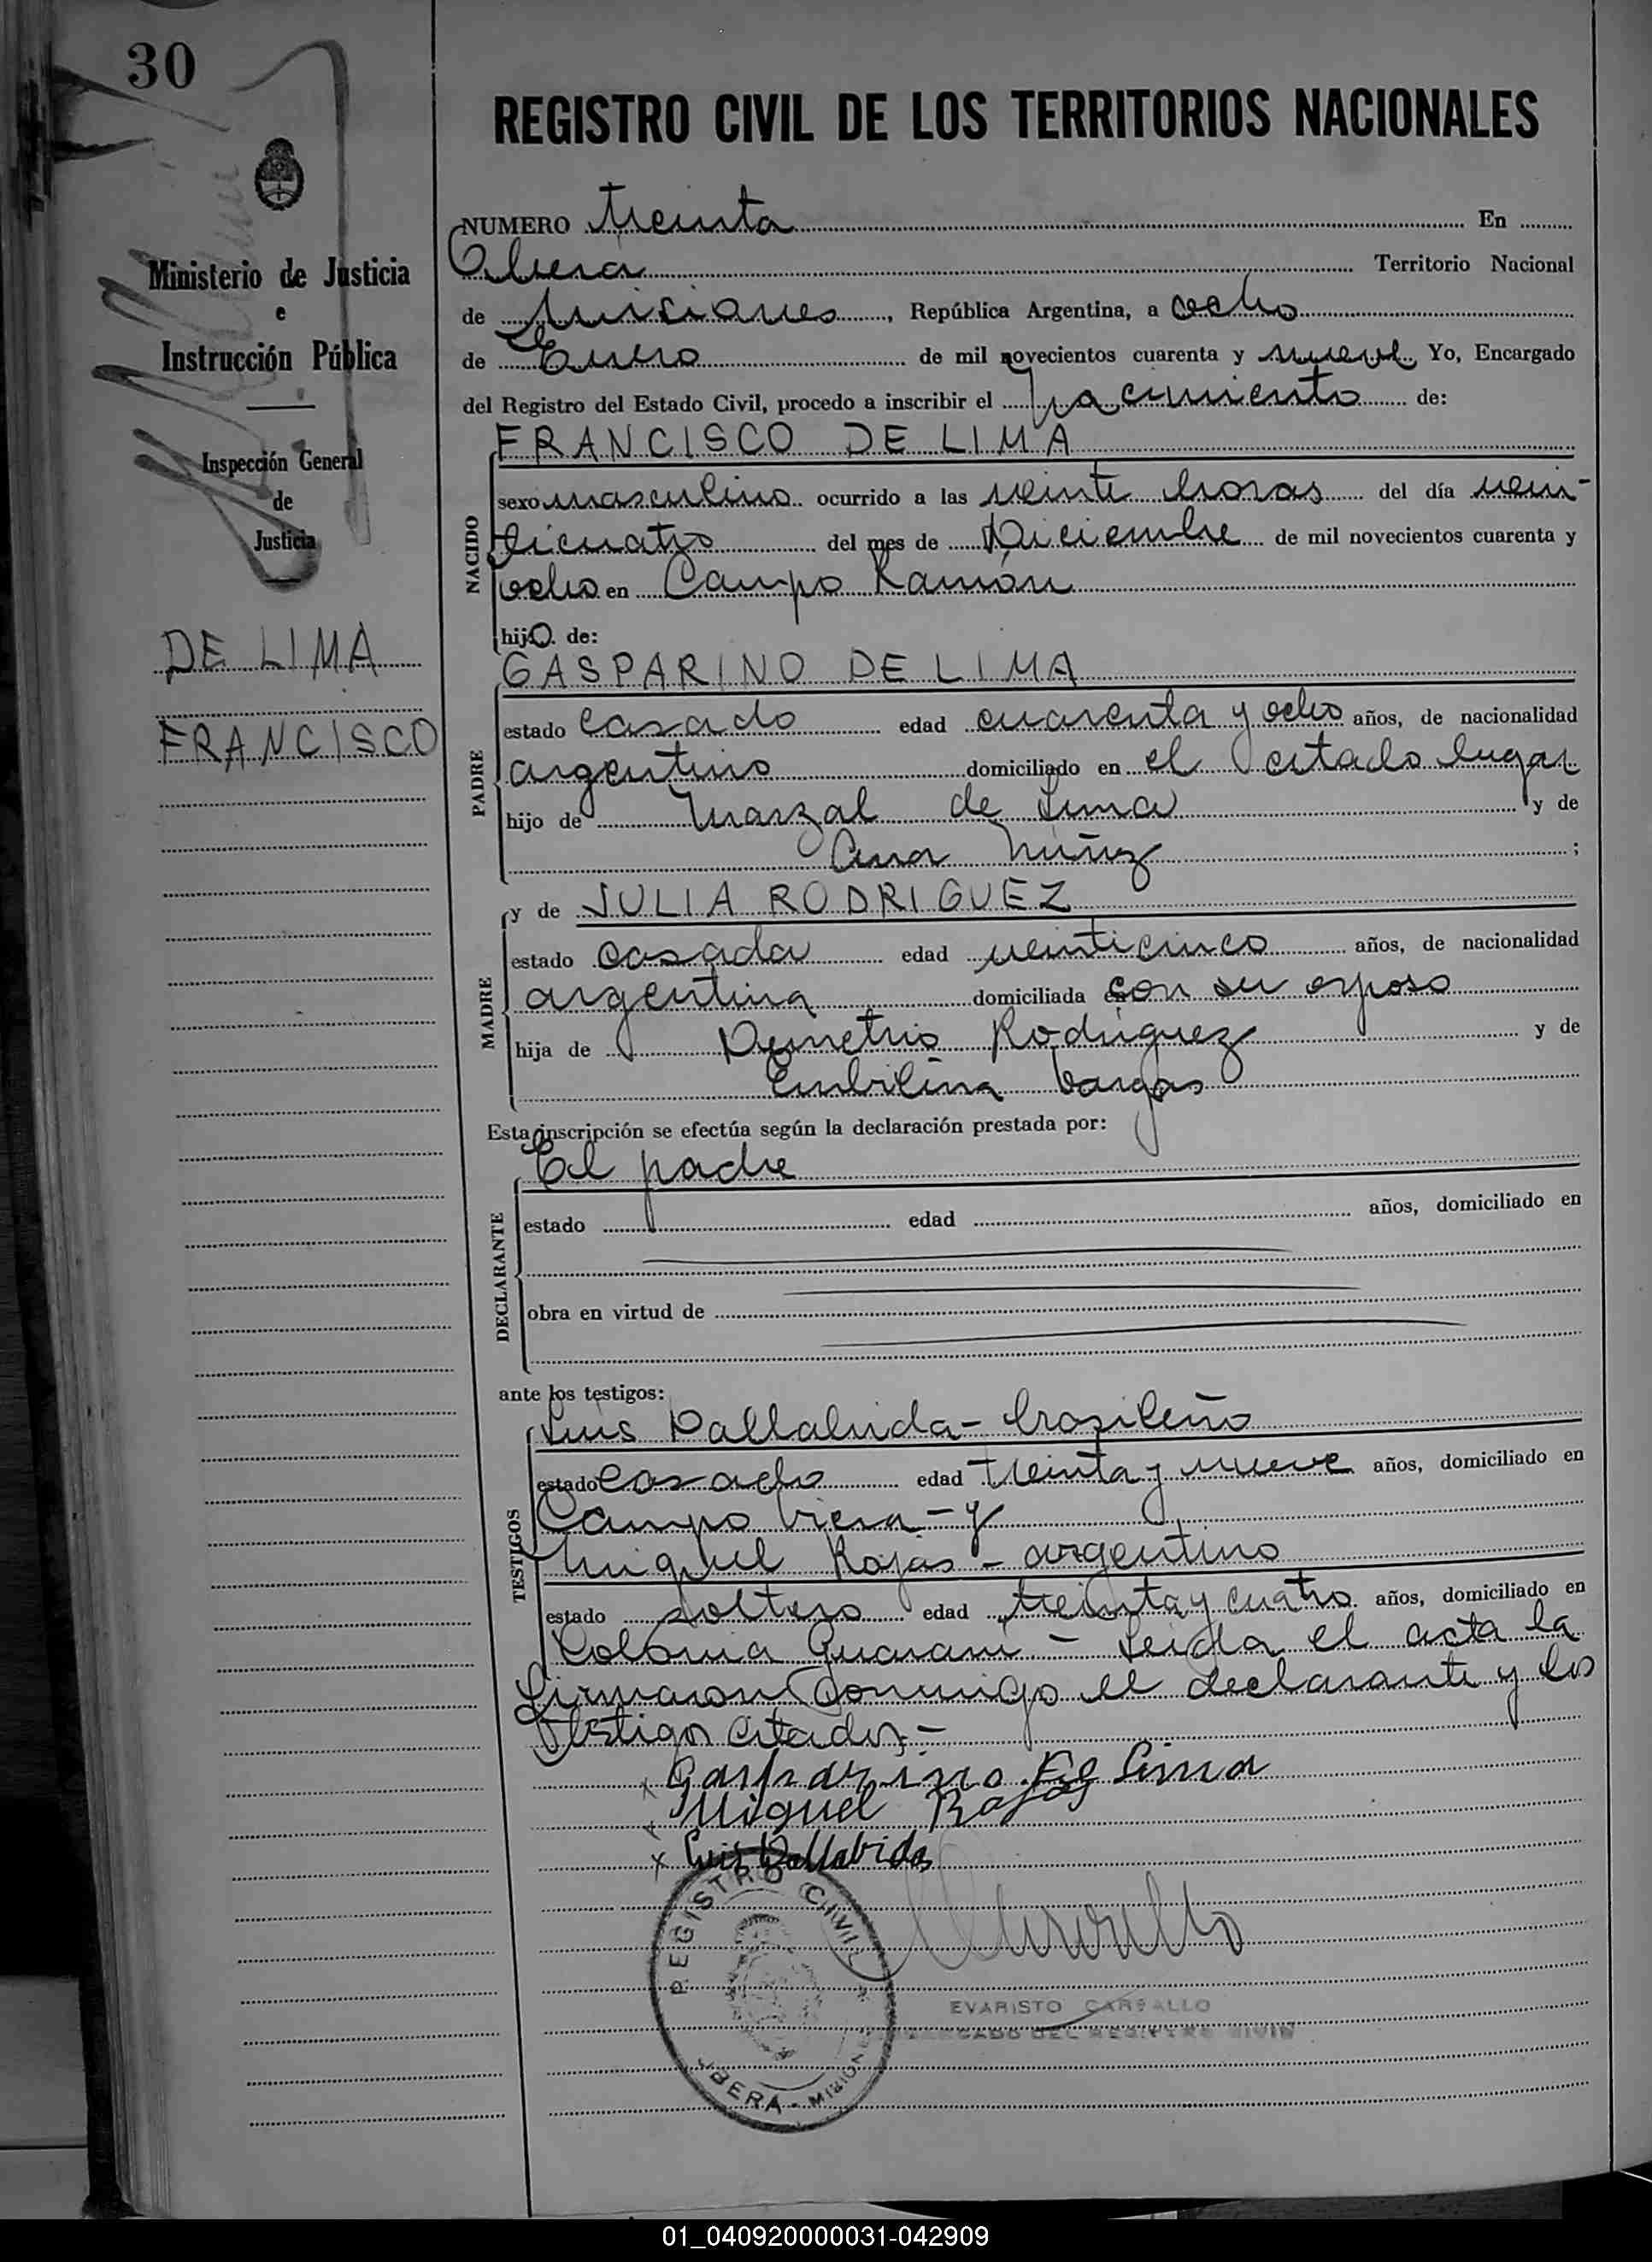 30
REGISTRO CIVIL DE LOS TERRITORIOS NACIONALES
Ministerio de Justicia
e
Instrucción Pública
Inspección General
de
Justicia
DE LIMA
FRANCISCO
NUMERO treinta En
Obera Territorio Nacional
de Misiones, República Argentina, a ocho
de Enero de mil novecientos cuarenta y nueve Yo, Encargado
del Registro del Estado Civil, procedo a inscribir el Nacimiento de:
FRANCISCO DE LIMA
NACIDO
sexo masculino ocurrido a las veinte horas del día vein-
ticuatro del mes de Diciembre de mil novecientos cuarenta y
ocho en Campo Ramón
hijo de:
GASPARINO DE LIMA
PADRE
estado casado edad cuarenta y ocho años, de nacionalidad
argentino domiciliado en el citado lugar
hijo de Marzal de Lima y de
Ana Núñez ;
y de JULIA RODRIGUEZ
MADRE
estado casada edad veinticinco años, de nacionalidad
argentina domiciliada con su esposo
hija de Demetrio Rodriguez y de
Vargas
Esta inscripción se efectúa según la declaración prestada por:
El padre
DECLARANTE
estado edad años, domiciliado en
obra en virtud de
ante los testigos:
Luis Dallabrida - brasileño
TESTIGOS
estado casado edad treinta y nueve años, domiciliado en
Campo Viera - y
Miguel Rojas - argentino
estado soltero edad treinta y cuatro años, domiciliado en
Colonia Guarani - Leida el acta la
firmaron conmigo el declarante y los
testigos citados.-
Gasparino de Lima
Miguel Rojas
Luis Dallabrida
REGISTRO CIVIL
OBERA - MISIONES
EVARISTO CARBALLO
ENCARGADO DEL REGISTRO CIVIL
01_040920000031-042909